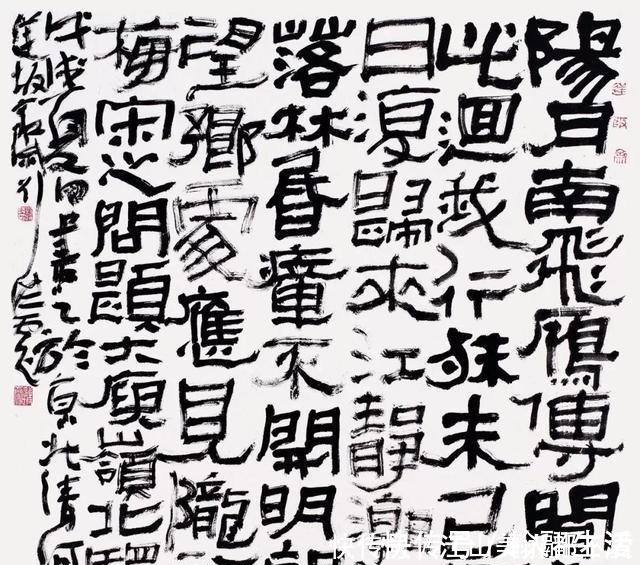 陽月南飛鴈傳聞
此迴我行殊未已
日復歸來江靜潮
落林昏瘴不開明
望鄉處應見隴
梅宋之問題大庾嶺北驛
戊戌夏書之於京北清河